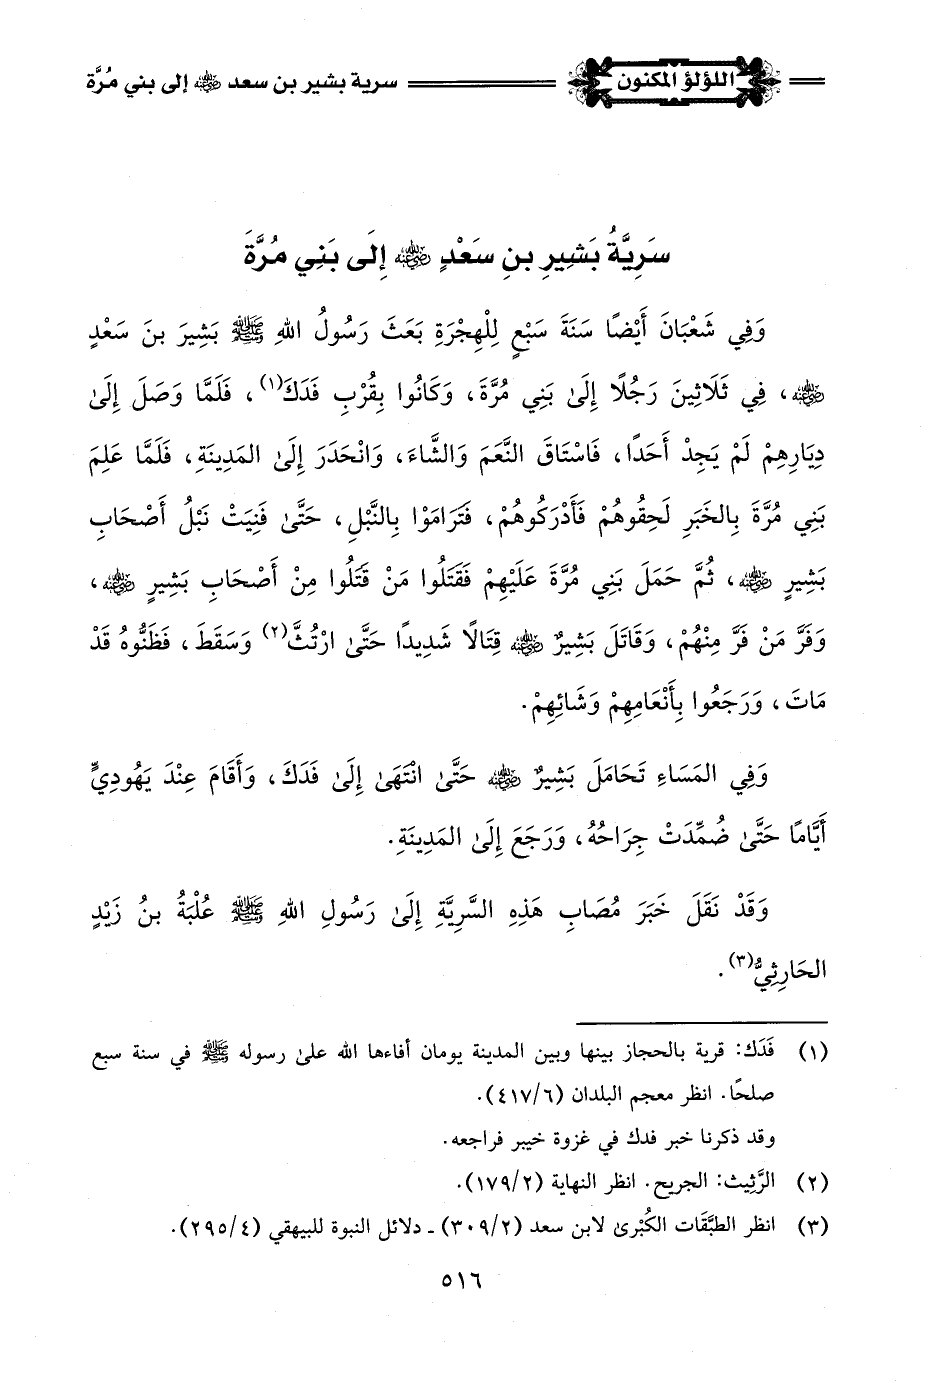 اللؤلؤ المكنون
سرية بشير بن سعد ﵁ إلى بني مُرَّة
سَرِيَّةُ بَشِيرِ بنِ سَعْدٍ ﵁ إِلَى بَنِي مُرَّةَ
وَفِي شَعْبَانَ أَيْضًا سَنَةَ سَبْعٍ لِلْهِجْرَةِ بَعَثَ رَسُولُ اللهِ ﷺ بَشِيرَ بنَ سَعْدٍ
﵁، فِي ثَلَاثِينَ رَجُلًا إِلَىٰ بَنِي مُرَّةَ، وَكَانُوا بِقُرْبِ فَدَكَ(١)، فَلَمَّا وَصَلَ إِلَىٰ
دِيَارِهِمْ لَمْ يَجِدْ أَحَدًا، فَاسْتَاقَ النَّعَمَ وَالشَّاءَ، وَانْحَدَرَ إِلَىٰ المَدِينَةِ، فَلَمَّا عَلِمَ
بَنِي مُرَّةَ بِالخَبَرِ لَحِقُوهُمْ فَأَدْرَكُوهُمْ، فَتَرَامَوْا بِالنَّبْلِ، حَتَّىٰ فَنِيَتْ نَبْلُ أَصْحَابِ
بَشِيرٍ ﵁، ثُمَّ حَمَلَ بَنِي مُرَّةَ عَلَيْهِمْ فَقَتَلُوا مَنْ قَتَلُوا مِنْ أَصْحَابِ بَشِيرٍ ﵁،
وَفَرَّ مَنْ فَرَّ مِنْهُمْ، وَقَاتَلَ بَشِيرٌ ﵁ قِتَالًا شَدِيدًا حَتَّىٰ ارْتُثَّ(٢) وَسَقَطَ، فَظَنُّوهُ قَدْ
مَاتَ، وَرَجَعُوا بِأَنْعَامِهِمْ وَشَائِهِمْ.
وَفِي المَسَاءِ تَحَامَلَ بَشِيرٌ ﵁ حَتَّىٰ انْتَهَىٰ إِلَىٰ فَدَكَ، وَأَقَامَ عِنْدَ يَهُودِيٍّ
أَيَّامًا حَتَّىٰ ضُمِّدَتْ جِرَاحُهُ، وَرَجَعَ إِلَىٰ المَدِينَةِ.
وَقَدْ نَقَلَ خَبَرَ مُصَابِ هَذِهِ السَّرِيَّةِ إِلَىٰ رَسُولِ اللهِ ﷺ عُلْبَةُ بنُ زَيْدٍ
الحَارِثِيُّ(٣).
(١) فَدَك: قرية بالحجاز بينها وبين المدينة يومان أفاءها الله علىٰ رسوله ﷺ في سنة سبع
صلحًا. انظر معجم البلدان (٤١٧/٦).
وقد ذكرنا خبر فدك في غزوة خيبر فراجعه.
(٢) الرَّثِيث: الجريح. انظر النهاية (١٧٩/٢).
(٣) انظر الطبَّقَات الكُبْرىٰ لابن سعد (٣٠٩/٢) ـ دلائل النبوة للبيهقي (٢٩٥/٤).
٥١٦